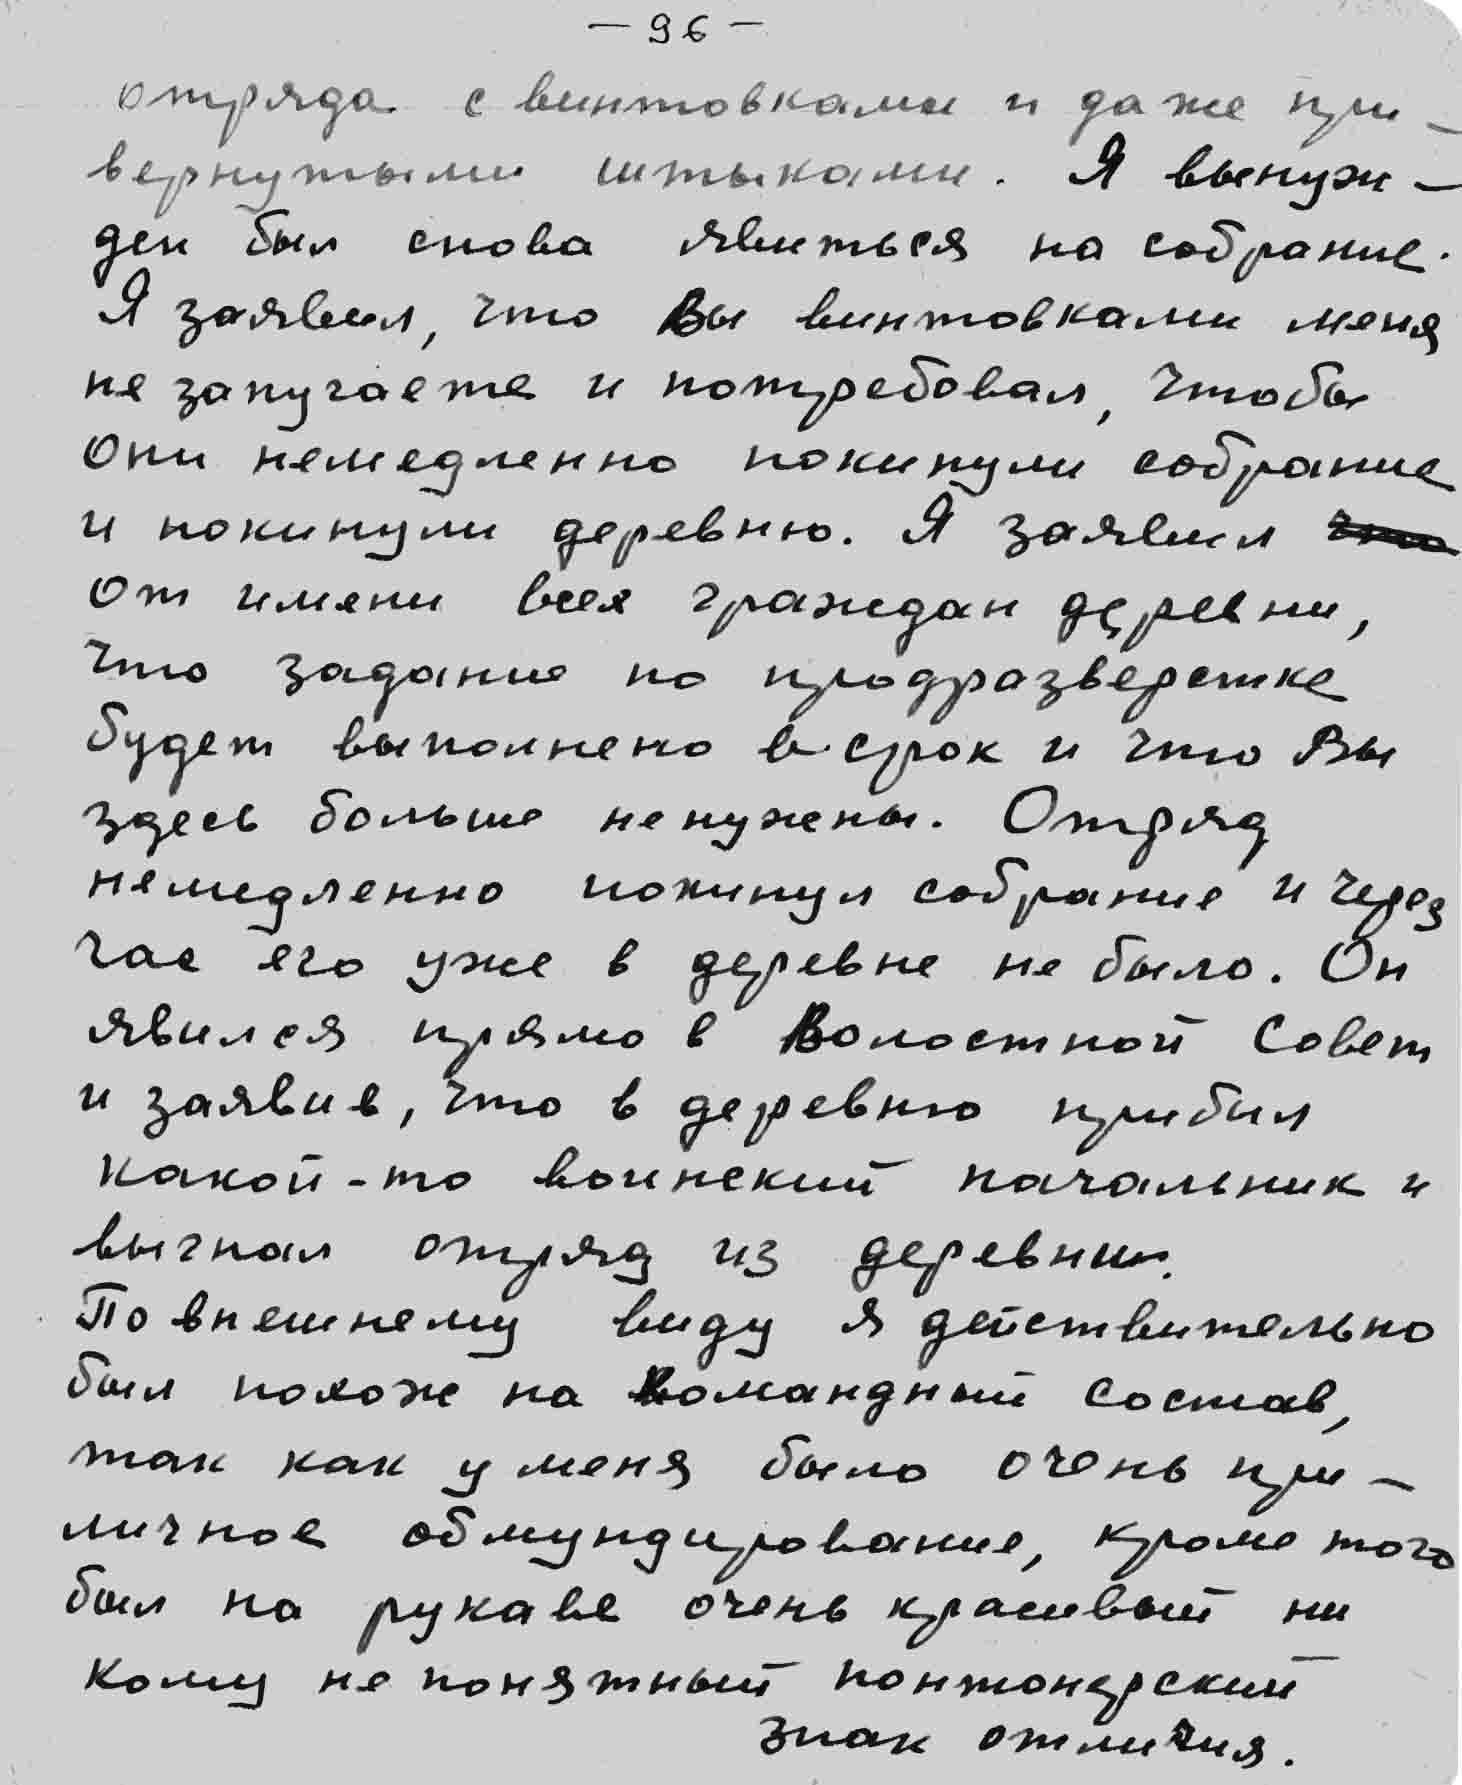 — 96 —
отряда с винтовками и даже при-
вернутыми штыками. Я вынуж-
ден был снова явиться на собрание.
Я заявил, что Вы винтовками меня
не запугаете и потребовал, чтобы
Они немедленно покинули собрание
и покинули деревню. Я заявил что
От имени всех граждан деревни,
что задание по продразверстке
будет выполнено в срок и что Вы
здесь больше ненужны. Отряд
немедленно покинул собрание и через
час его уже в деревне не было. Он
явился прямо в Волостной Совет
и заявив, что в деревню прибыл
какой-то воинский начальник и
выгнал отряд из деревни.
По внешнему виду я действительно
был похож на Командный состав,
так как у меня было очень при-
личное обмундирование, кроме того
был на рукаве очень красивый ни
кому не понятный понтонерский
знак отличия.